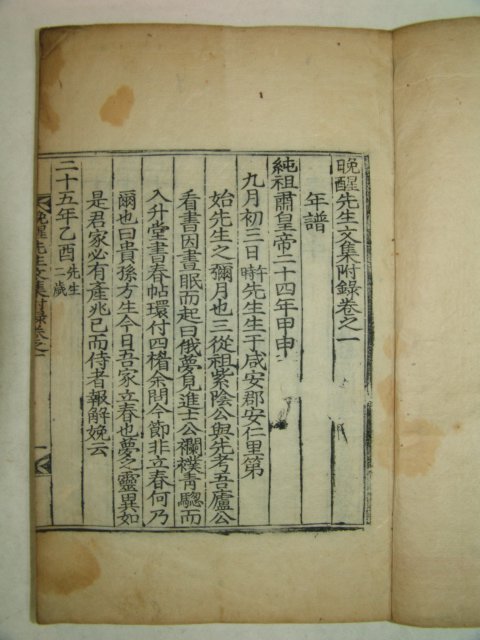 晩醒先生文集附錄卷之一
年譜
純祖肅皇帝二十四年甲申
九月初三日時先生生于咸安郡安仁里第
始先生之彌月也三從祖紫陰公與先考吾廬公
看書因晝眠而起曰俄夢見進士公襴襆青驄而
入升堂書春帖環付四楹余問今節非立春何乃
爾也曰貴孫方生今日吾家立春也夢之靈異如
是君家必有產兆已而侍者報解娩云
二十五年乙酉先生二歲
晩醒先生文集附錄卷之一
一